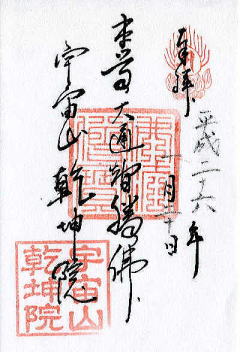 奉拝
平成二十六年
本尊大通智勝佛
宇宙山乾坤院
宇宙山
乾坤院